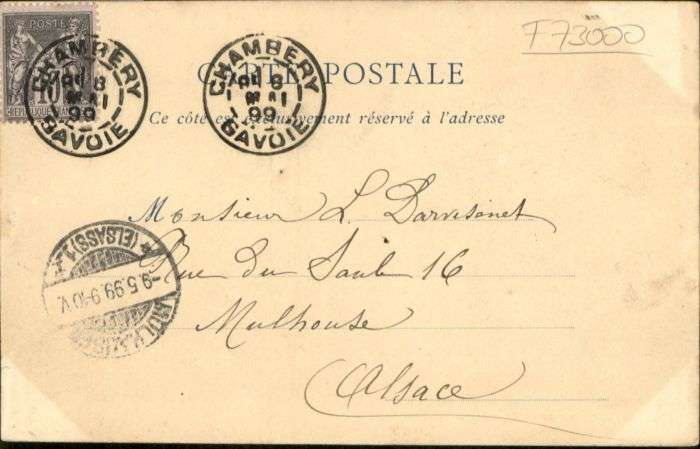 F73000
POSTE
CHAMBÉRY
8
MAI
99
SAVOIE
CHAMBÉRY
8
MAI
99
SAVOIE
CARTE POSTALE
Ce côté est exclusivement réservé à l'adresse
Monsieur L. Darvisenet
Rue du Saule 16
Mulhouse
Alsace
(ELSASS) 1
-9.5.99.9-10.V.